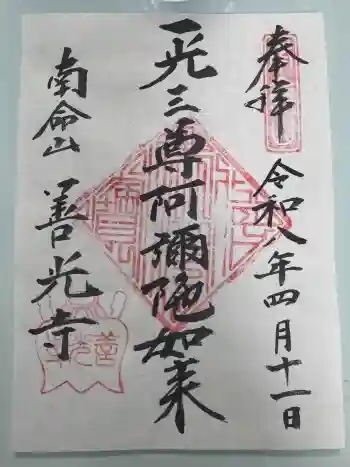 奉拝
令和八年四月十一日
一光三尊阿彌陀如来
南命山 善光寺